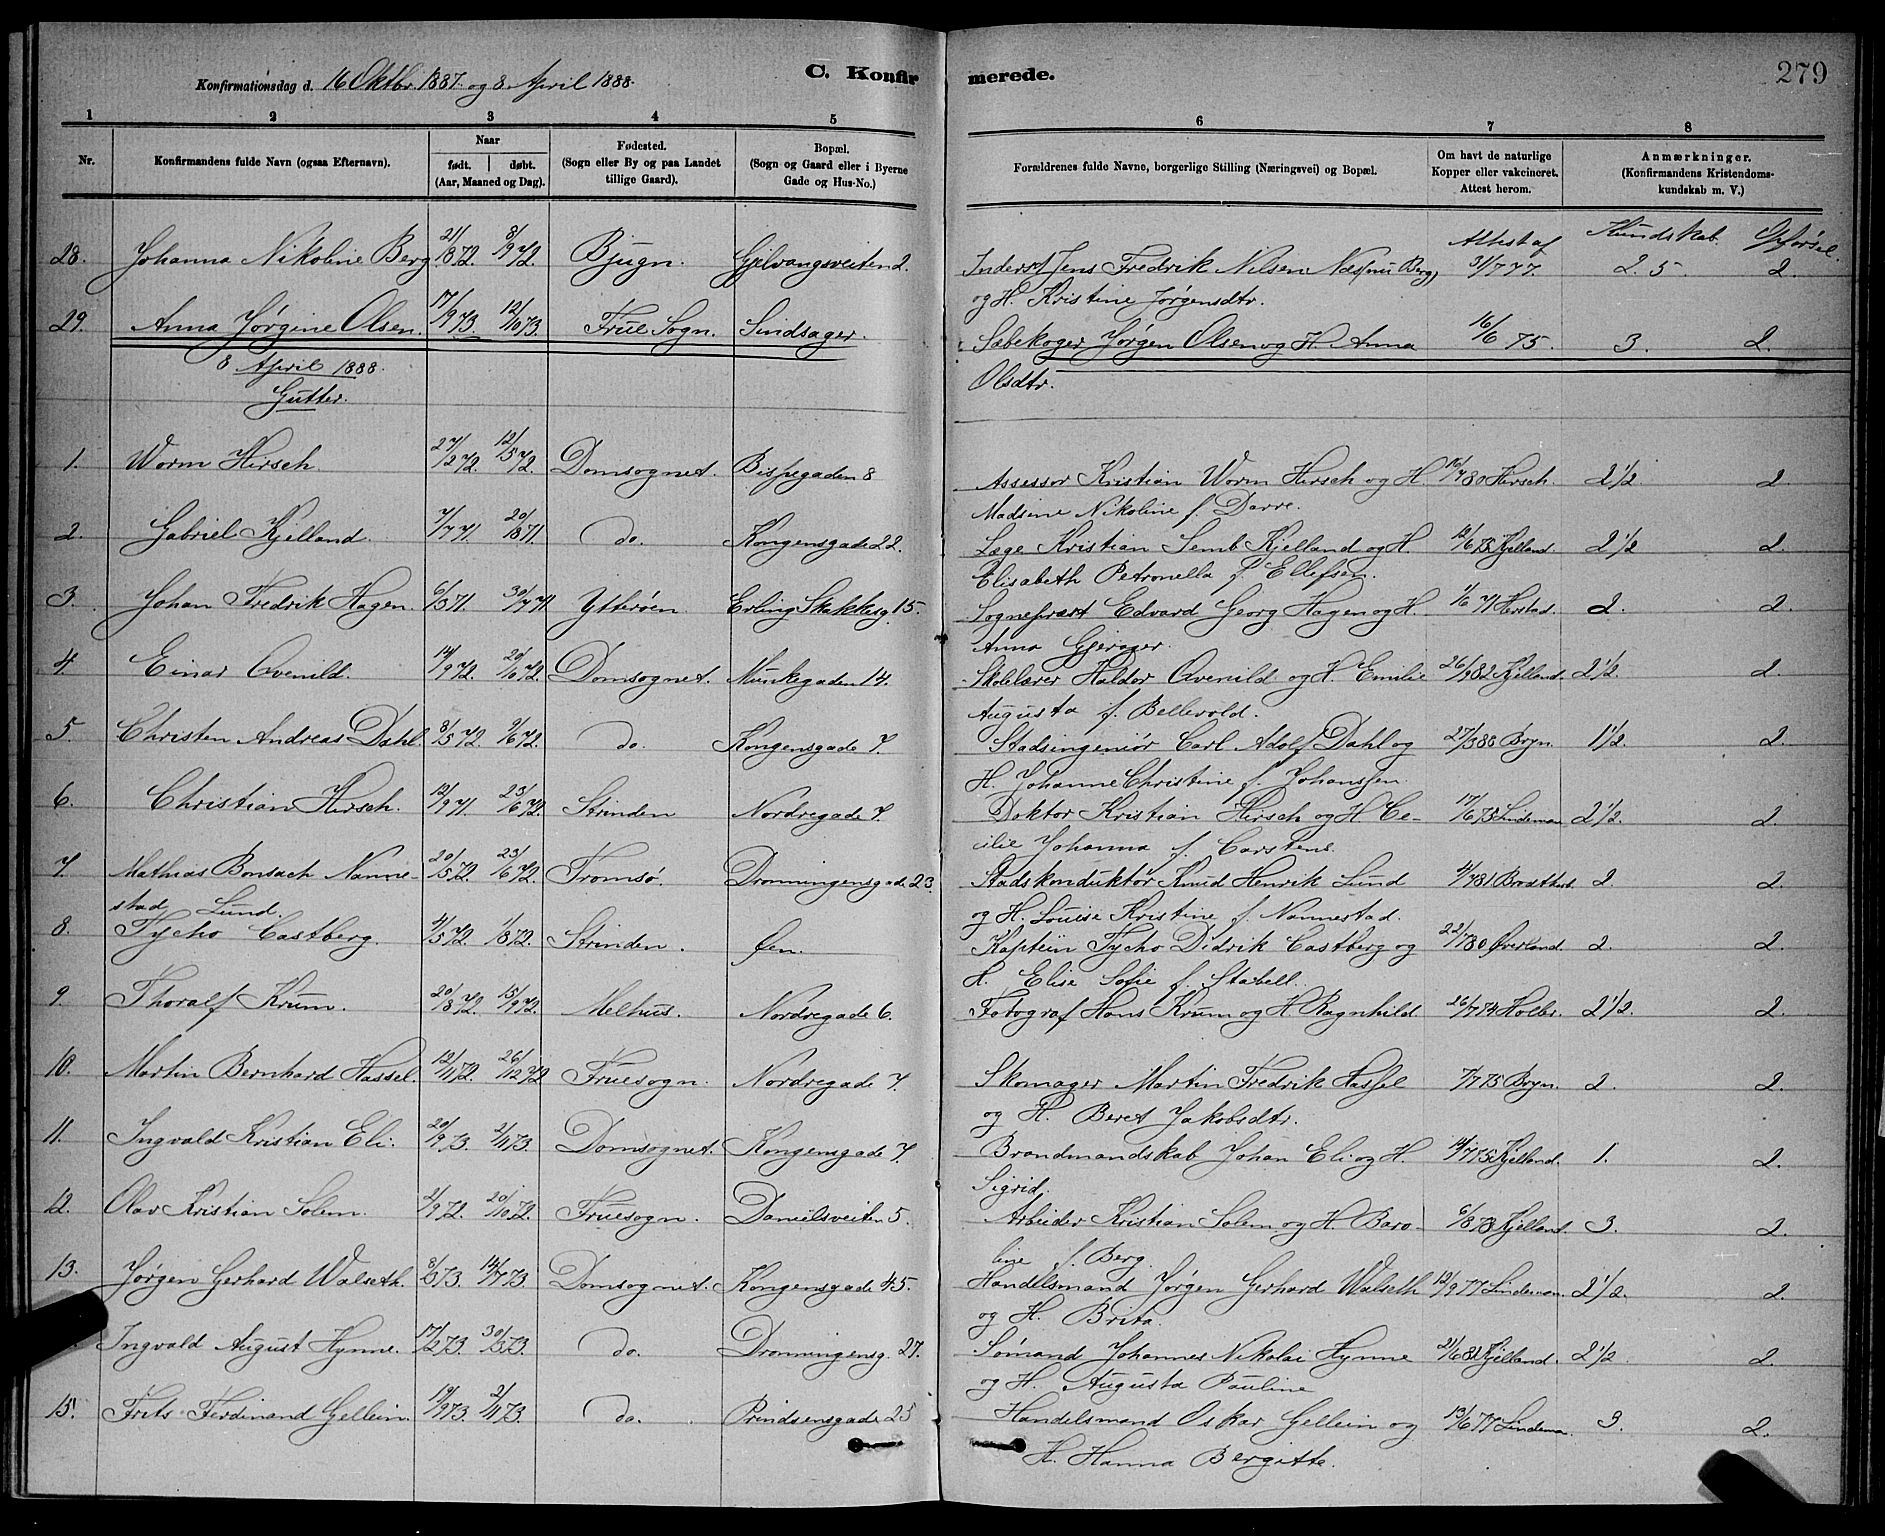 Konfirmationsdag d. 16 Oktbr. 1887. og 8. April 1888.
C. Konfirmerede.
279
1 2 3 4 5 6 7 8
Nr.
Konfirmandens fulde Navn (ogsaa Efternavn).
Naar
født. døbt.
(Aar, Maaned og Dag).
Fødested.
(Sogn eller By og paa Landet
tillige Gaard).
Bopæl.
(Sogn og Gaard eller i Byerne
Gade og Hus-No.)
Forældrenes fulde Navne, borgerlige Stilling (Næringsvei) og Bopæl.
Om havt de naturlige
Kopper eller vakcineret.
Attest herom.
Anmærkninger.
(Konfirmandens Kristendoms-
kundskab m. V.)
Attest af Kundskab. Opførsel.
28. Johanna Nikoline Berg. 21/8 72. 8/9 72. Bjugn. Gjelvangsveiten 2. Inderst Jens Fredrik Nilsen Næs (nu Berg) 31/7 77. 2.5 2.
og H. Kristine Jørgensdtr.
29. Anna Jørgine Olsen. 17/9 73. 12/10 73. Frue Sogn. Sindsager. Sæbekoger Jørgen Olsen og H. Anna 16/6 75. 3. 2.
Olsdtr.
8 April 1888.
Gutter.
1. Worm Hirsch. 27/2 72. 12/5 72. Domsognet. Bispegaden 8 Assessor Kristian Worm Hirsch og H. 16/7 80 Hirsch. 2 1/2 2.
Madsine Nikoline f. Darre.
2. Gabriel Kjelland. 7/7 71. 20/8 71. do. Kongensgade 22. Læge Kristian Lemb Kjelland og H. 12/6 73 Kjelland. 2 1/2 2.
Elisabeth Petronella f. Ellefsen.
3. Johan Fredrik Hagen. 6/3 71. 30/7 71 Ytterøen. Erling Skakkesg. 15. Sogneprest Edvard Georg Hagen og H. 1/6 71 Herstad. 2. 2.
Anna Gjerager.
4. Einar Qvenild. 14/9 72. 20/10 72. Domsognet. Munkegaden 14. Skolelærer Haldor Qvenild og H. Emilie 26/9 82 Kjelland. 2 1/2. 2.
Augusta f. Bellevold.
5. Christen Andreas Dahl. 8/5 72. 9/6 72. do. Kongensgade 7. Stadsingeniør Carl Adolf Dahl og 27/3 80 Bryn. 1 1/2. 2.
H. Johanne Christine f. Johanssen.
6. Christian Hirsch. 12/9 71. 23/6 72. Strinden Nordregade 7. Doktor Kristian Hirsch og H. Ce- 17/6 75 Lindeman 2 1/2. 2.
cilie Johanna f. Carstens.
7. Mathias Bonsach Nanne- 20/5 72. 23/6 72. Tromsø. Dronningensgade 23. Stadskonduktør Knud Henrik Lund 4/7 81 2. 2.
stad Lund. og H. Louise Kristine f. Nannestad.
8. Tycho Castberg. 4/5 72. 1/8 72. Strinden. Øen. Kaptein Tycho Didrik Castberg og 22/7 80 Øverland 2. 2.
H. Elise Sofie f. Stabell.
9. Thoralf Krum. 20/8 72. 15/9 72. Melhus. Nordregade 6. Fotograf Hans Krum og H. Ragnhild 26/7 74 Holbr. 2 1/2. 2.
10. Martin Bernhard Hassel. 12/11 72. 26/12 72 Fruesogn. Nordregade 7. Skomager Martin Fredrik Hassel 7/7 75 Bryn. 2. 2.
og H. Beret Jakobsdtr.
11. Ingvald Kristian Eli. 20/9 73. 2/11 73. Domsognet. Kongensgade 7. Brandmandskab Johan Eli og H. 14/7 75 Kjelland. 1. 2.
Sigrid.
12. Olav Kristian Solem. 2/9 72. 20/10 72. Fruesogn. Danielsveiten 5. Arbeider Kristian Solem og H. Baro- 6/8 73 Kjelland. 3. 2.
line f. Berg.
13. Jørgen Gerhard Walseth. 8/3 73. 14/7 73. Domsognet. Kongensgade 45. Handelsmand Jørgen Gerhard Walseth 12/9 77 Lindeman. 2 1/2. 2.
og H. Brita.
Ingvald August Hynne. 17/2 73. 30/3 73. do. Dronningensg. 27. Sømand Johannes Nikolai Hynne 21/6 81 Kjelland. 2 1/2 2.
og H. Augusta Pauline
15. Frits Ferdinand Gellein. 19/9 73. 2/11 73. do. Prindsensgade 25 Handelsmand Oskar Gellein og 13/6 77 Lindeman. 3. 2.
H. Hanna Bergitte.